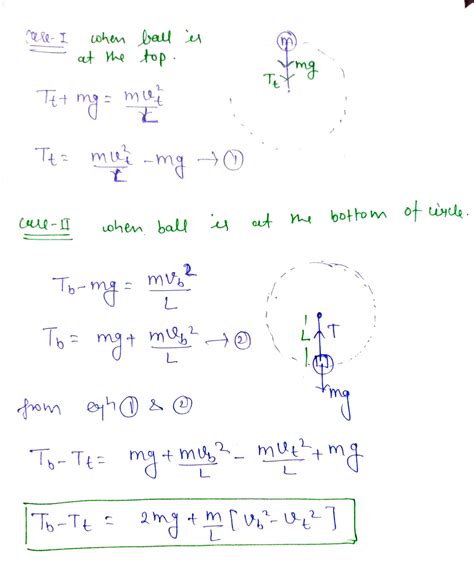 case-I when ball is
at the top.
m
mg
Tt
Tt + mg = mvt²/L
Tt = mvt²/L - mg → ①
case-II when ball is at the bottom of circle.
Tb - mg = mvb²/L
Tb = mg + mvb²/L → ②
L
T
mg
from eqn ① & ②
Tb - Tt = mg + mvb²/L - mvt²/L + mg
Tb - Tt = 2mg + m/L [vb² - vt²]